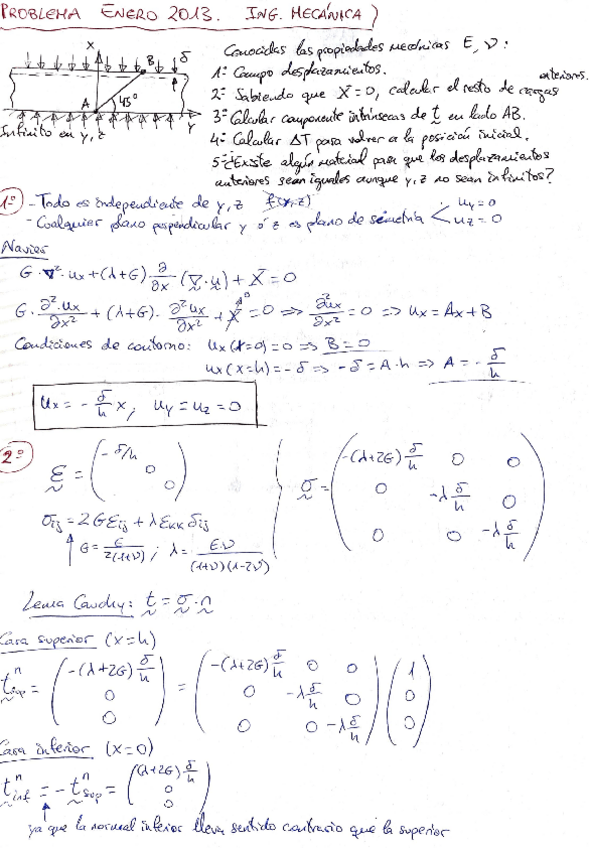 PROBLEMA ENERO 2013. ING. MECÁNICA)
x
B
δ
A
45º
y
Infinito en y, z
Conocidas las propiedades mecánicas E, ν:
1º Campo desplazamientos.
2º Sabiendo que X=0, calcular el resto de cargas anteriores.
3º Calcular componente intrínsecas de t en lado AB.
4º Calcular ΔT para volver a la posición inicial.
5º ¿Existe algún material para que los desplazamientos
anteriores sean iguales aunque y, z no sean infinitos?
1º - Todo es independiente de y, z f(y,z)
- Cualquier plano perpendicular y ó z es plano de simetría < uy=0
uz=0
Navier
G·∇²·ux+(λ+G) ∂/∂x (∇·u)+X=0
G·∂²ux/∂x² + (λ+G)·∂²ux/∂x² + X=0 => ∂²ux/∂x² = 0 => ux=Ax+B
Condiciones de contorno: ux(x=0)=0 => B=0
ux(x=h)=-δ => -δ=A·h => A=-δ/h
ux = -δ/h x, uy=uz=0
2º
ε = (-δ/h 0 0)
σ = (-(λ+2G)δ/h 0 0
0 -λδ/h 0
0 0 -λδ/h)
σij=2Gεij+λεkkδij
G=E/2(1+ν); λ=E·ν/(1+ν)(1-2ν)
Lema Cauchy: t=σ·n
Cara superior (x=h)
t^n sup = (-(λ+2G)δ/h 0 0) = (-(λ+2G)δ/h 0 0
0 -λδ/h 0
0 0 -λδ/h) (1 0 0)
Cara inferior (x=0)
t^n inf = -t^n sup = ((λ+2G)δ/h 0 0)
ya que la normal inferior lleva sentido contrario que la superior